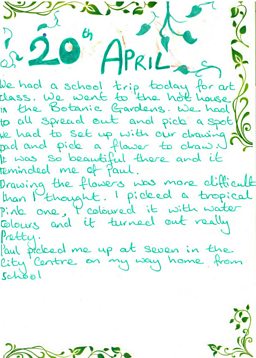 20th April
We had a school trip today for art
class. We went to the hot house
in the Botanic Gardens. We had
to all spread out and pick a spot
We had to set up with our drawing
pad and pick a flower to draw.
It was so beautiful there and it
reminded me of Paul.
Drawing the flowers was more difficult
than I thought. I picked a tropical
pink one, I coloured it with water
colours and it turned out really
pretty.
Paul picked me up at seven in the
City Centre on my way home from
School